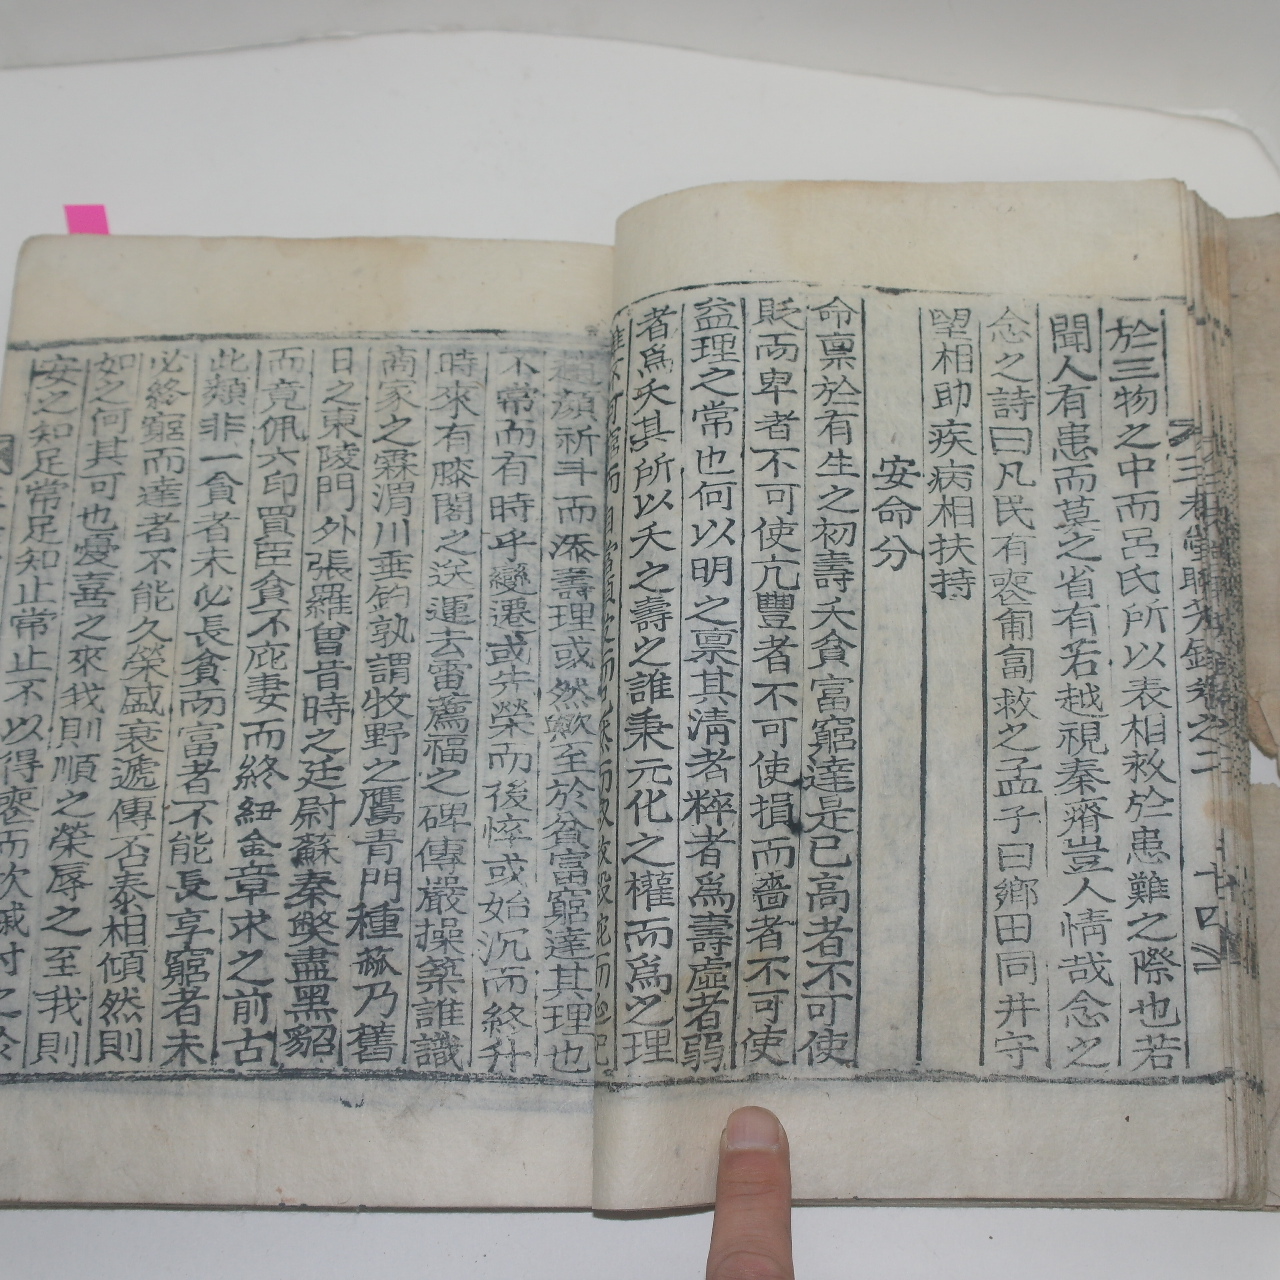 於三物之中而呂氏所以表相救於患難之際也若
聞人有患而莫之省有若越視秦瘠豈人情哉念之
念之詩曰凡民有喪匍匐救之孟子曰鄉田同井守
望相助疾病相扶持
安命分
命禀於有生之初壽夭貧富窮達是已高者不可使
貶而卑者不可使亢豐者不可使損而嗇者不可使
益理之常也何以明之禀其清者粹者爲壽虛者弱
者爲夭其所以夭之壽之誰秉元化之權而爲之理
趙顏祈斗而添壽理或然歟至於貧富窮達其理也
不常而有時乎變遷或先榮而後悴或始沉而終升
時來有滕閣之送運去雷薦福之碑傳嚴操築誰識
商家之霖渭川垂鈞孰謂牧野之鷹青門種瓞乃舊
日之東陵門外張羅曾昔時之廷尉蘇秦獘盡黑貂
而竟佩六印買臣貧不庇妻而終紐金章求之前古
此類非一貧者未必長貧而富者不能長享窮者未
必終窮而達者不能久榮盛衰遞傳否泰相傾然則
如之何其可也憂喜之來我則順之榮辱之至我則
安之知足常足知止常止不以得喪而欣戚付之於